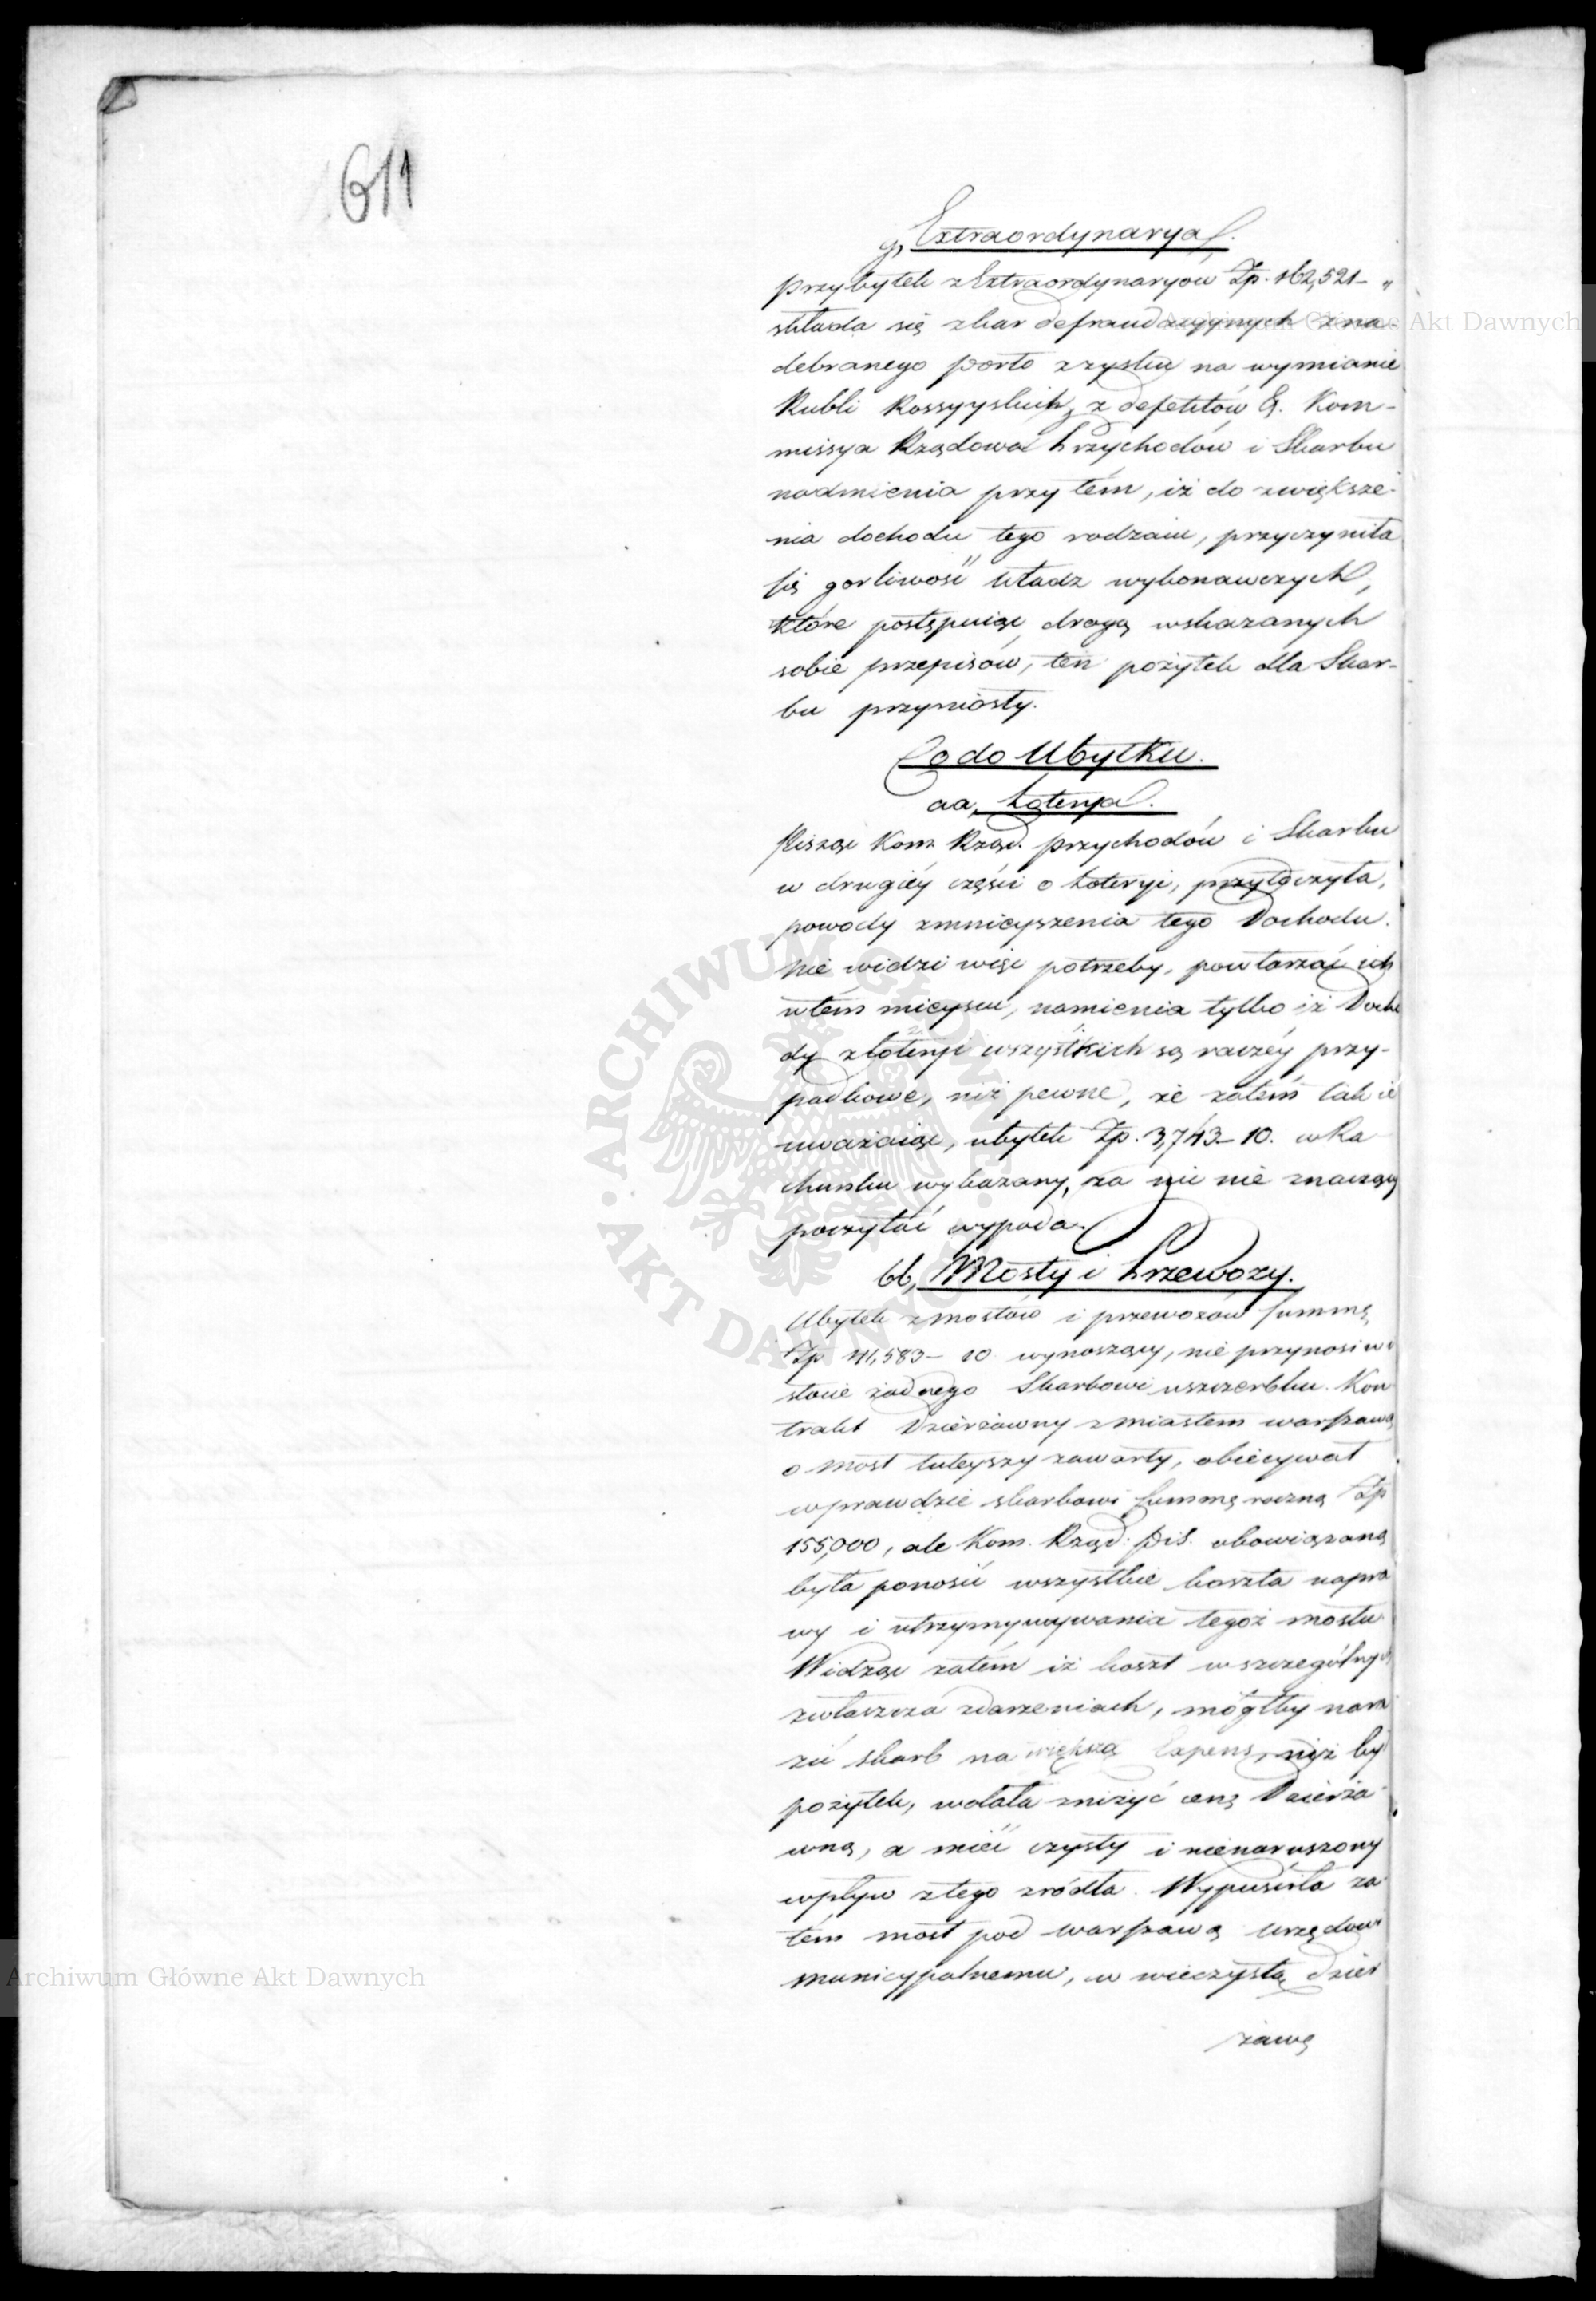 611
y, Extraordynarya.
przybytek z Extraordynaryow Zp. 162,521 – „
składa się z kar defraudacyynych z na-
debranego porto zzysku na wymianie
Rubli Rossyyskich, z defektów &. Kom-
missya Rządowa Przychodów i Skarbu
nadmienia przy tém, iż do zwiększe-
nia dochodu tego rodzaiu, przyczyniła
się gorliwość Władz wykonawczych,
które postępuiąc drogą wskazanych
sobie przepisów, ten pożytek dla Skar-
bu przyniosły.
Co do Ubytku.
aa, Loterya.
Pisząc Kom Rząd. przychodów i Skarbu
w drugiéy części o Loteryi, przytoczyła,
powody zmnieyszenia tego Dochodu.
Nie widzi więc potrzeby, powtarzać ich
w tém mieyscu, namienia tylko iż Docho
dy z Loteryi wszystkich są raczéy przy-
padkowe, niż pewne, że zatém tak ie
uważaiąc, ubytek Zp. 3,743 – 10. w Ra
chunku wykazany, za nic nie znaczący
poczytać wypada.
bb, Mosty i Przewozy.
Ubytek z mostów i przewozów summę
Zp 41,583 – 10 wynoszący, nie przynosi w i
stocie żadnego Skarbowi uszczerbku. Kon
trakt Dzierżawny z miastem warszawą
o most tuteyszy zawarty, obiecywał
wprawdzie skarbowi summę roczną Zp
155,000, ale Kom. Rząd: PiS. obowiązaną
była ponosić wszystkie koszta napra
wy i utrzymywywania tegoż mostu
Widząc zatém iż koszt w szczególnych
zwłaszcza zdarzeniach, mógłby nara
zić skarb na większą Expens, niż by
pożytek, wolała zniżyć cenę Dzierża
wną, a mieć czysty i nienaruszony
wpływ z tego zródła. Wypuściła za
tém most pod warszawą Urzędowi
municypalnemu, w wieczystą dzier
żawę
Archiwum Główne Akt Dawnych
Archiwum Główne Akt Dawnych
ARCHIWUM GŁÓWNE AKT DAWNYCH